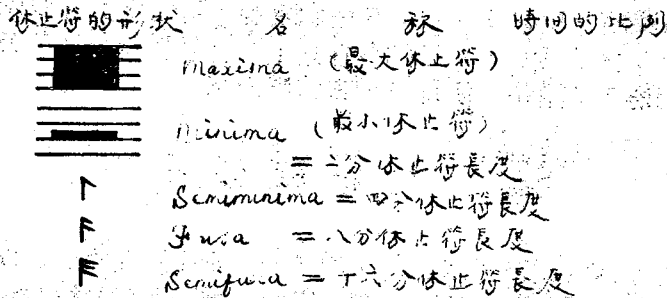 休止符的形狀 名 称 時间的比例
maxima (最大休止符)
minima (最小休止符)
=二分休止符長度
Semiminima = 四分休止符長度
Fusa = 八分休止符長度
Semifusa = 十六分休止符長度